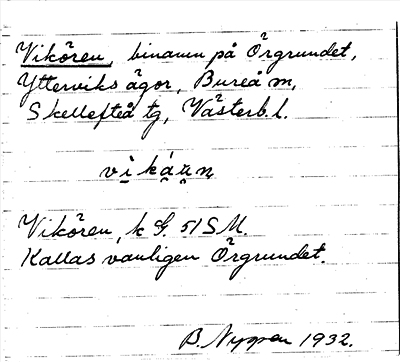 Vikören, binamn på Örgrundet,
Ytterviks ägor, Bureå sn,
Skellefteå tg, Västerb. l.
Vikören, k G. 51 S M.
Kallas vanligen Örgrundet.
B. Nygren 1932.